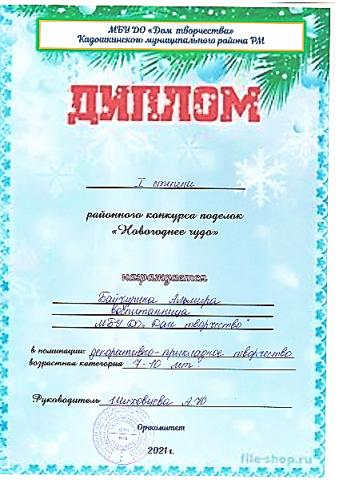 МБУ ДО «Дом творчества»
Кадошкинского муниципального района РМ
ДИПЛОМ
I степени
районного конкурса поделок
«Новогоднее чудо»
награждается
Байчурина Альмира
воспитанница
МБУ ДО „Дом творчества"
в номинации: декоративно-прикладное творчество
возрастная категория 7-10 лет
Руководитель А.Ю
Оргкомитет
2021 г.
file-shop.ru